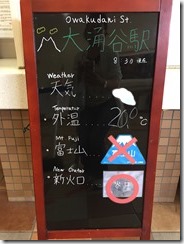 Owakudani St.
大涌谷駅
8:30 現在
Weather
天気
Temperature
・外温 20.0℃
Mt. Fuji
・富士山
New Crater
・新火口